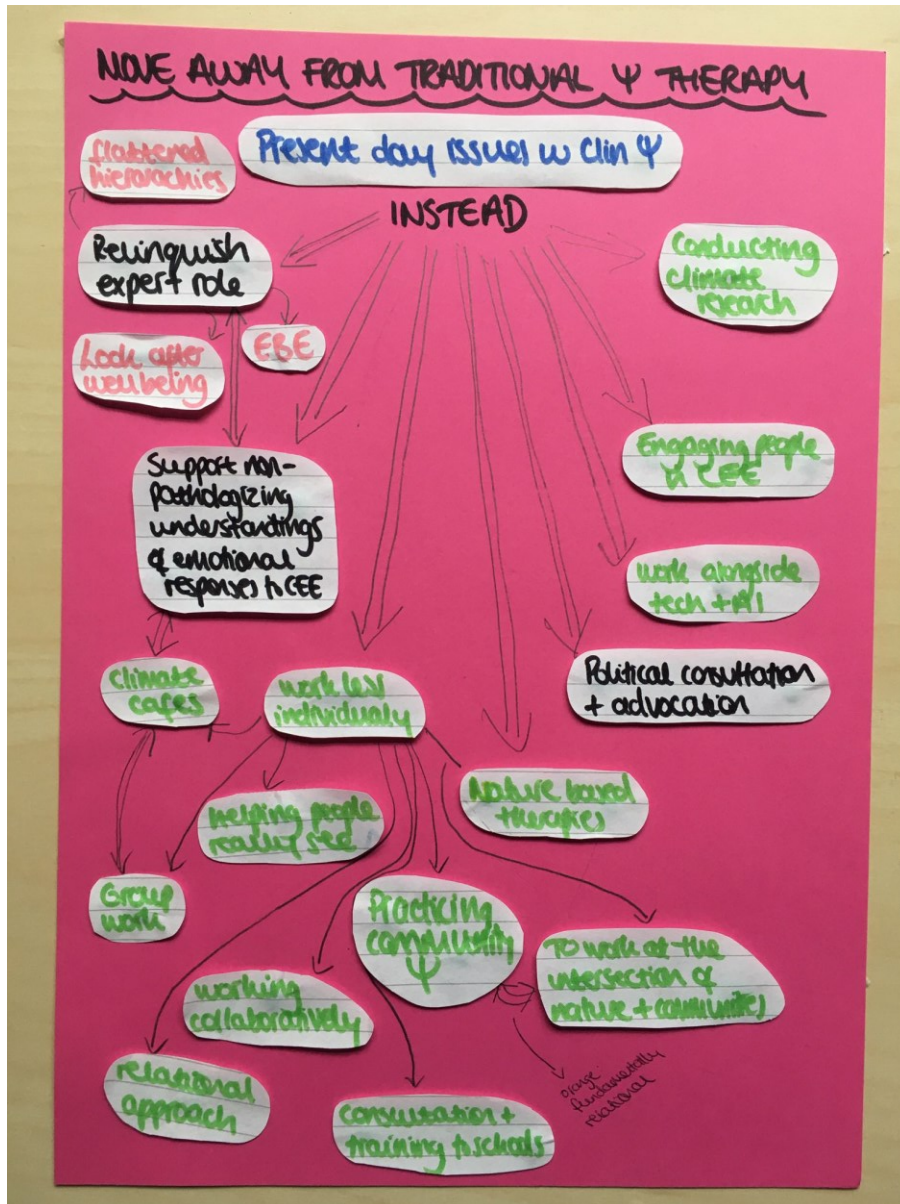 MOVE AWAY FROM TRADITIONAL Ψ THERAPY
Present day issues w Clin Ψ
flattered
hierarachies
INSTEAD
Relinquish
expert role
Conducting
climate
research
Look after
wellbeing
EBE
Engaging people
w CEE
Support non-
pathologizing
understandings
of emotional
responses to CEE
work alongside
tech + AI
Political consultation
+ advocation
climate
cafes
work less
individualy
Nature based
therapies
helping people
really see
Group
work
Practicing
community
Ψ
To work at the
intersection of
nature + communities
working
collaboratively
relational
approach
consultation +
training to schools
orange:
fundamentally
relational